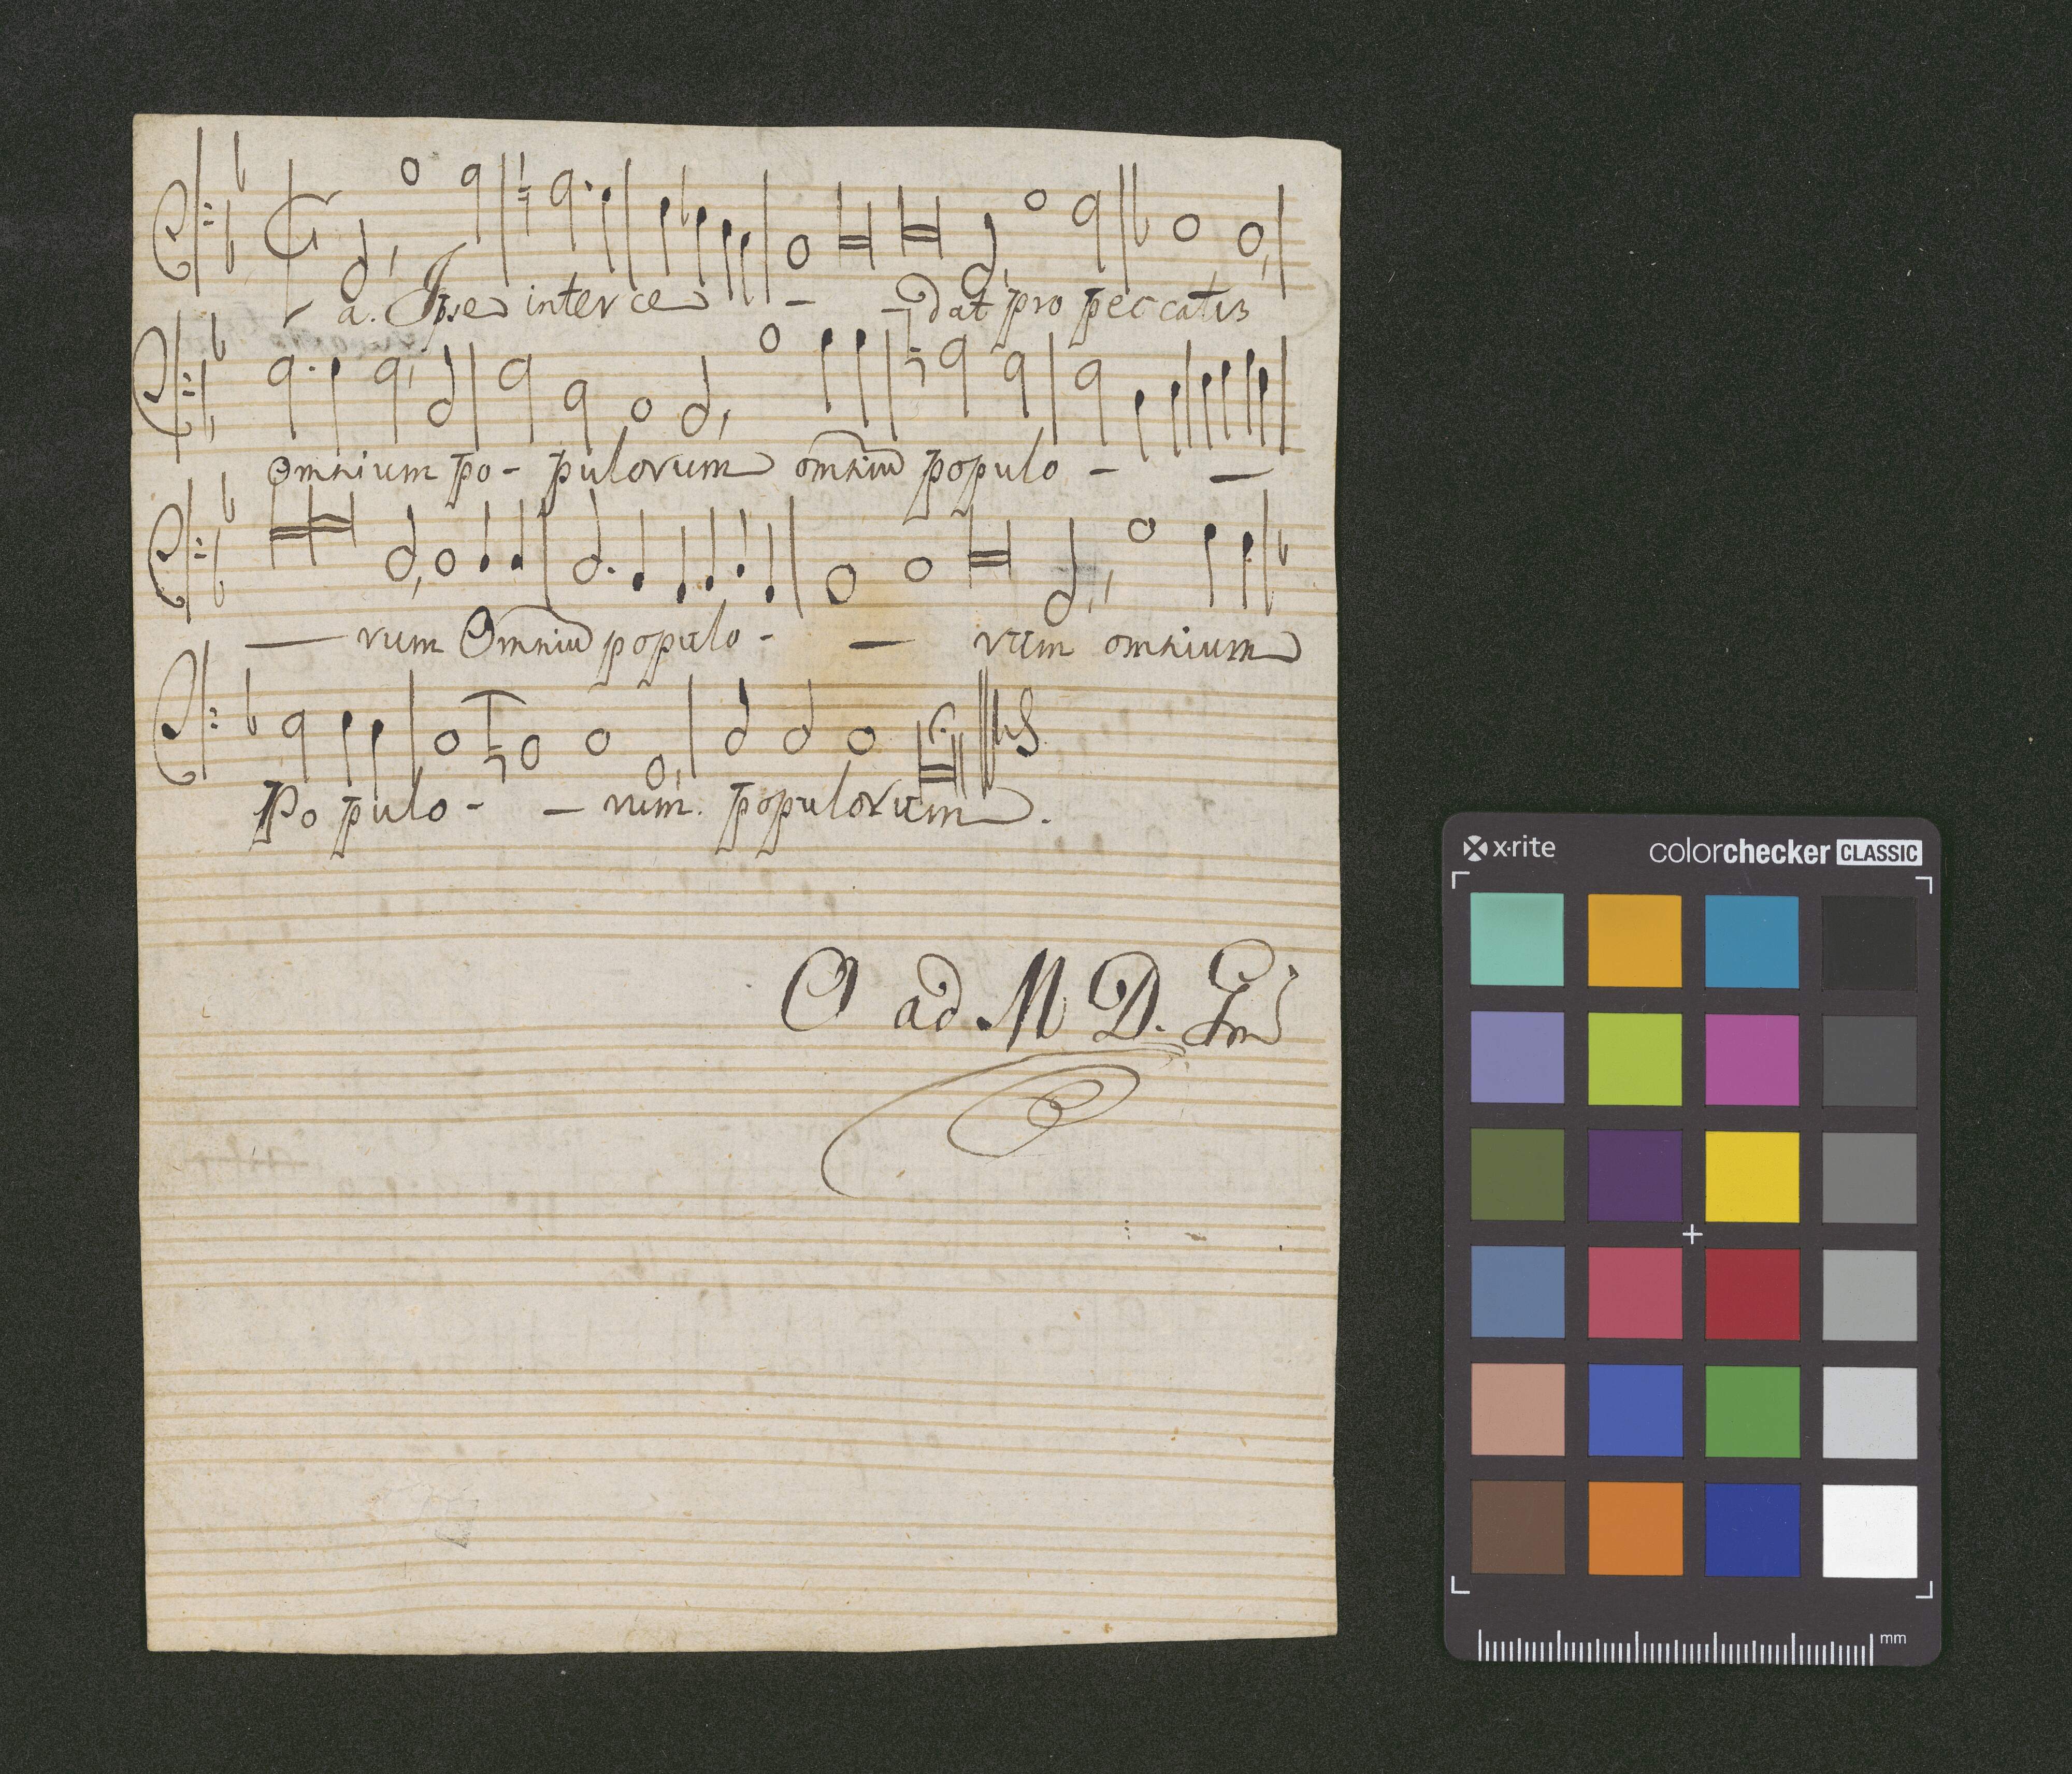 a. Ipse interce - - dat pro peccatis
Omnium po- pulorum omniū populo - -
- rum Omniū populo - - rum omnium
Populo - - rum. populorum.
O ad M D.
x·rite colorchecker CLASSIC
mm